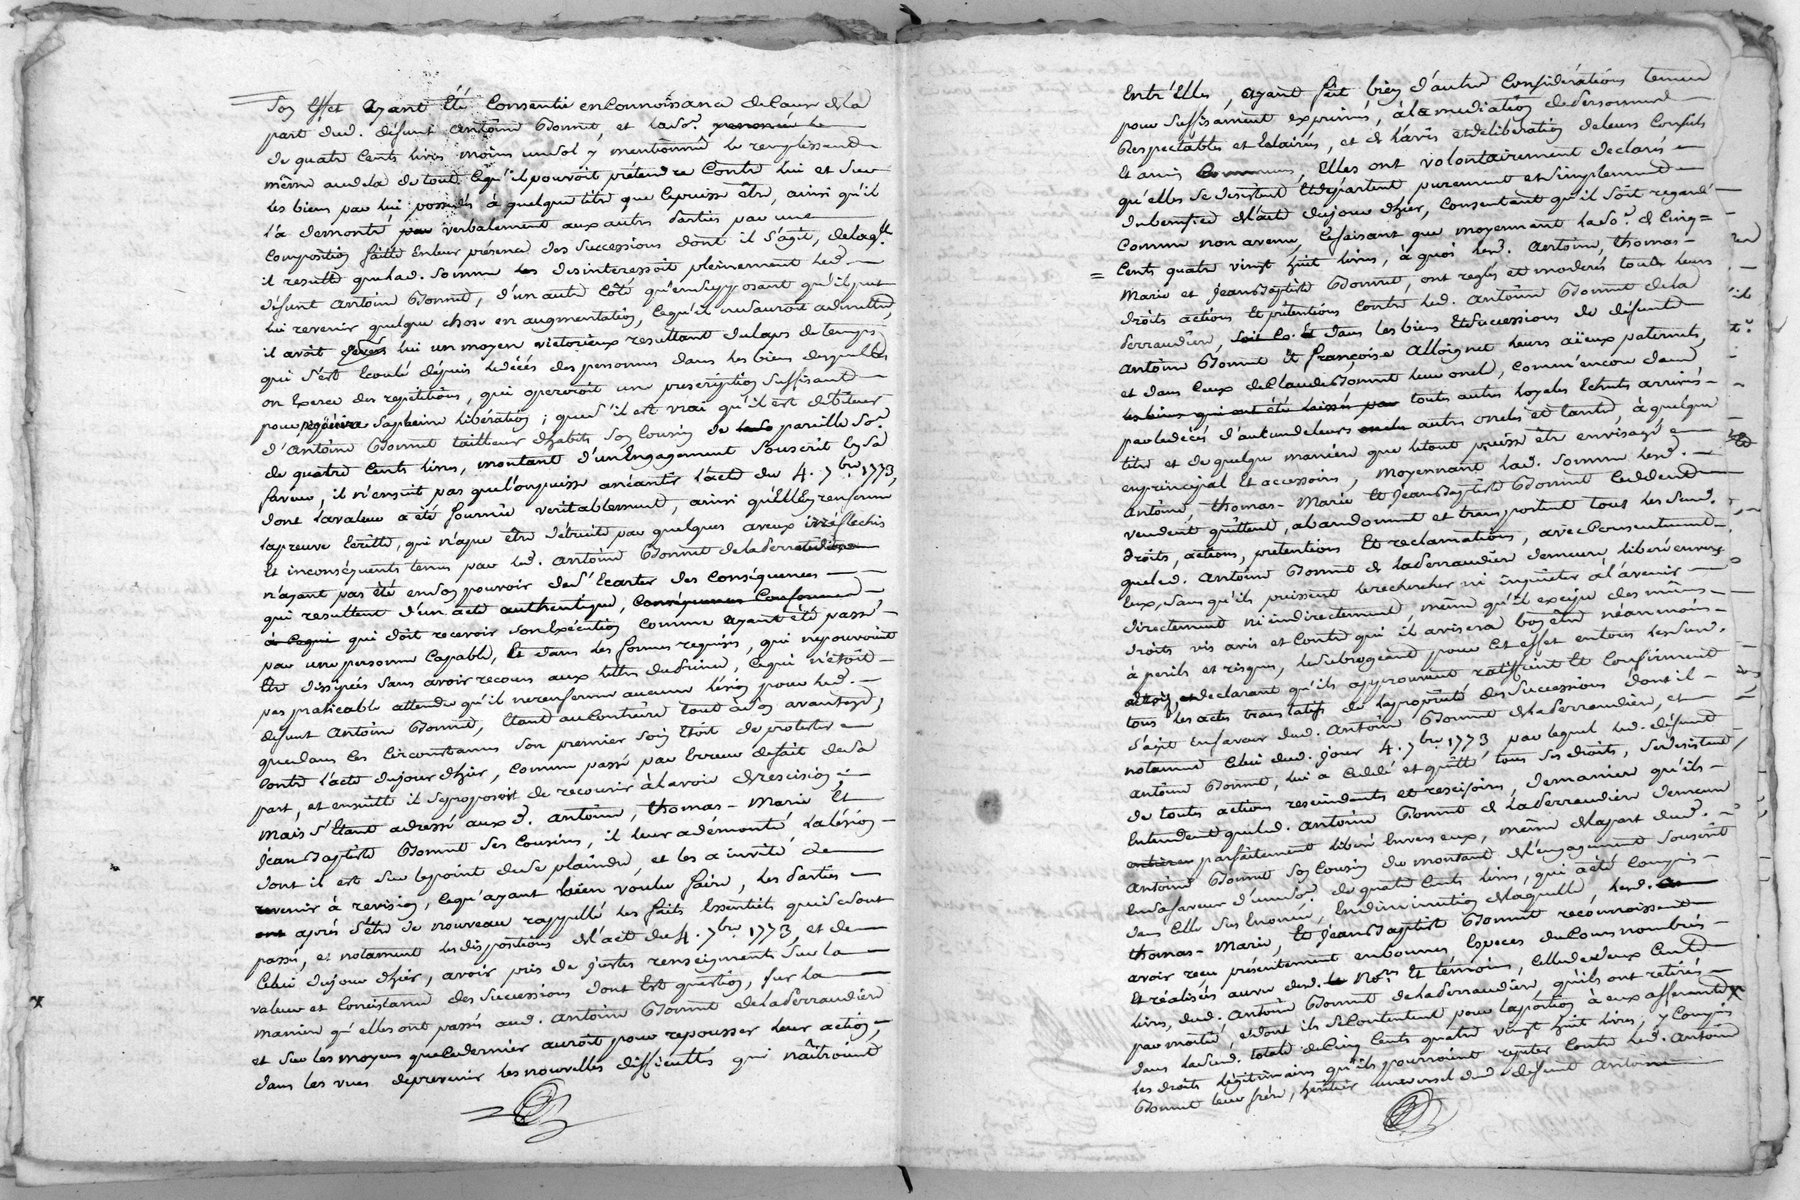 Son effet ayant été Consentie en Connoissance de Cause de la
part dud. défunt Antoine Bonnet, et lad. so.e
de quatre Cents livres moins un sol y mentionnée le remplissant
même audela de tout Cequ'il pouvoit prétendre Contre lui et sur
les biens par lui possedés à quelque titre que Cepuisse être, ainsi qu'il
l'a demontré verbalement aux autres parties par une
Composition faitte en leur présence des Successions dont il s'agit, de laq.lle
il resulte que lad. somme les desinteressoit pleinement led.
défunt Antoine Bonnet, d'un autre Côté qu'en supposant qu'il put
lui revenir quelque chose en augmentation, Cequ'il ne sauroit admettre,
il avoit devers lui un moyen victorieux resultant du laps de temps
qui s'est Ecoulé depuis le décès des personnes dans les biens desquelles
on Exerce des repetitions, qui opereroit une prescription suffisante
pour opérer sa pleine libération ; que s'il est vrai qu'il est débiteur
d'Antoine Bonnet tailleur d'habits son Cousin de pareille So.e
de quatre Cents livres, montant d'un Engagement souscrit en sa
faveur, il n'ensuit pas que l'on puisse anéantir l'acte du 4. 7bre 1773,
dont la valeur a été fournie veritablement, ainsi qu'Elle en renferme
la preuve Ecritte, qui n'a pu être détruite par quelques aveux irréflechis
Et inconséquents tenus par led. Antoine Bonnet de la Perraudiere
n'ayant pas été en son pouvoir de s'Ecarter des Conséquences
qui resultent d'un acte authentique, Conséquences Conformes
à Cequi qui doit recevoir son Exécution Comme ayant été passé
par une personne Capable, Et dans les formes requises, qui ne pouvoient
Etre dissipées sans avoir recours aux lettres du Prince, Cequi n'étoit
pas praticable attendu qu'il ne renferme aucune lésion pour led.
défunt Antoine Bonnet, Etant au Contraire tout à son avantage,
que dans les Circonstances son premier soin étoit de protester
Contre l'acte du jour d'hier, Comme passé par Erreur de fait de sa
part, et ensuitte il se proposoit de recourir à la voie de rescision ;
Mais s'Etant adressé aux d. Antoine, thomas - Marie Et
Jean Baptiste Bonnet ses Cousins, il leur a démontré la lésion
dont il est sur le point de se plaindre, et les a invité de
revenir à revision, Cequ'ayant bien voulu faire, les Parties
ont après s'être de nouveau rappellé les faits Essentiels qui se sont
passés, et notament les dispositions de l'acte du 4. 7bre 1773, et de
Celui du jour d'hier, avoir pris de justes renseignements sur la
valeur et Consistance des Successions dont Est question, sur la
maniere qu'elles ont passés aud. Antoine Bonnet de la Perraudiere
et sur les moyens que Ce dernier auroit pour repousser leur action,
dans les vues de prevenir les nouvelles difficultés qui naîtroient
Entr'Elles, ayant fait bien d'autres Considérations tenues
pour suffisament exprimées, à la mediation de Personnes
Respectables et Eclairées, et de l'avis et deliberation de leurs Conseils
et amis Communs, Elles ont volontairement declaré
qu'elles se desistent Et départent purement et simplement
du benefice de l'acte du jour d'hier, Consentant qu'il soit regardé
Comme non avenu, Ce faisant que moyennant la So.e de Cinq
= Cents quatre vingt huit livres, à quoi led. Antoine, thomas -
Marie et Jean Baptiste Bonnet, ont reglé et moderés toutes leurs
droits actions et prétentions Contre led. Antoine Bonnet de la
Perraudiere, dans les biens Et Successions de défunts
Antoine Bonnet Et françoise Alloignet leurs aïeux paternels,
et dans Ceux de Claude Bonnet leur oncle, Comm'encore dans
les biens qui ont été laissés par toutes autres hoyeries Echuts arrivées
par le decès d'aucun de leurs autres oncles et tantes, à quelque
titre et de quelque maniere que le tout puisse être envisagé
en principal Et accessoires, Moyennant lad. somme led.
Antoine - thomas - Marie Et Jean Baptiste Bonnet Ceddent
vendent quittent, abandonnent et transportent tous les susd.
droits, actions, pretentions Et reclamations, avec Consentement
que led. Antoine Bonnet de la Perraudiere demeure liberé envers
Eux, sans qu'ils puissent le rechercher ni inquieter à l'avenir
directement ni indirectement, même qu'il excipe des mêmes
droits vis avis et Contre qui il avisera bon être néanmoins
à perils et risques, le subrogeant pour Cet effet en tous les susd.
droits, et declarant qu'ils approuvent ratifient Et Confirment
tous les actes translatifs de la propriété des Successions dont il
s'agit En faveur dud. Antoine Bonnet de la Perraudiere, et
notament Celui dud. jour 4. 7bre 1773 par lequel led. défunt
Antoine Bonnet, lui a Ceddé et quitté tous ses droits, se desistent
de toutes actions rescindants et rescisoires, de maniere qu'ils
Entendent que led. Antoine Bonnet de la Perraudiere demeure
parfaitement liberé Envers eux, même de la part dud.
Antoine Bonnet son Cousin du montant de l'engagement souscrit
En sa faveur d'une so.e de quatre Cents livres, qui a été Compris
dans Celle sus Enoncée, En diminution de laquelle led.
thomas - Marie, Et Jean Baptiste Bonnet reconnoissent
avoir reçu présentement en bonnes Especes du Cours nombrées
Et réalisées au vu desd. Nores Et témoins, Celle de deux Cents
livres, dud. Antoine Bonnet de la Perraudiere, qu'ils ont retirés
par moitié, et dont ils se Contentent pour la portion à eux afferante
dans lesusd. totale de Cinq Cents quatre vingt huit livres, y Compris
les droits légitimaires qu'ils pourroient repeter Contre led. Antoine
Bonnet leur frère, heritier universel dud. défunt Antoine